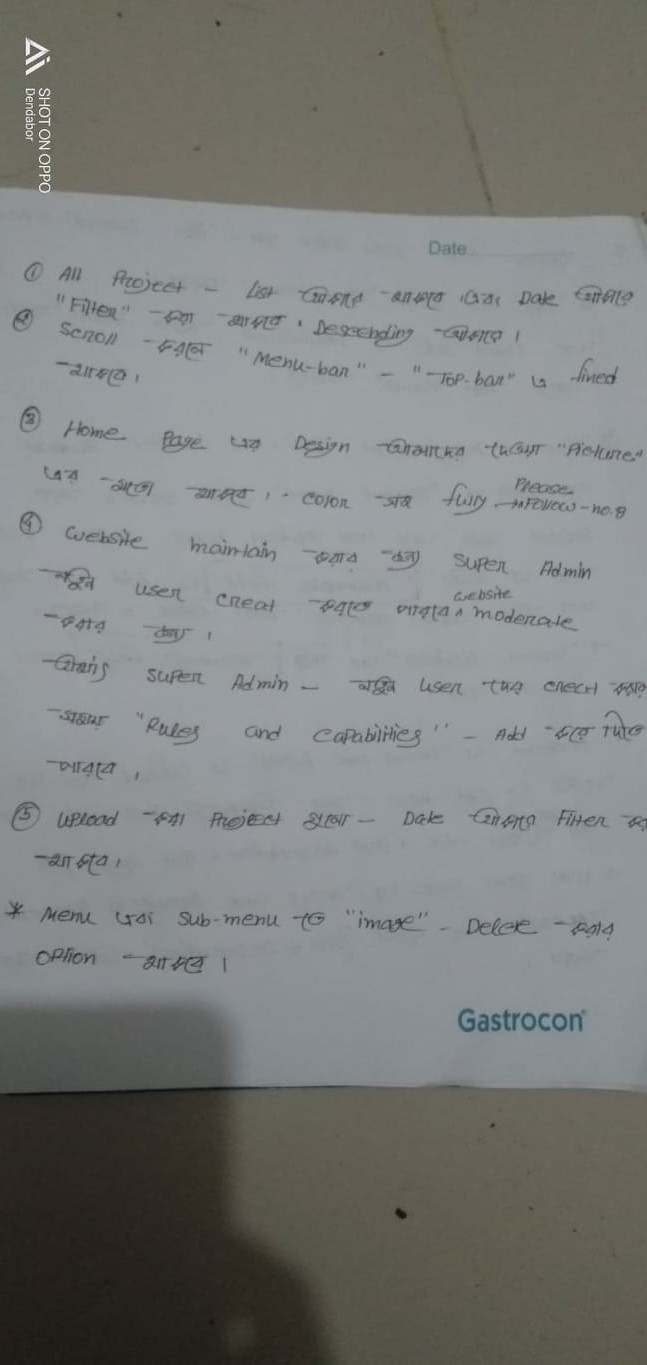 SHOT ON OPPO
Dendabor
Date
① All Project - List আকারে থাকবে এবং Date আকারে
"Filter" করা থাকবে। Descending আকারে।
② Scroll করলে "Menu-bar" - "Top-bar" এ fixed
থাকবে।
③ Home Page এর Design আমাদের দেওয়া "Picture"
এর মতো থাকবে। Color সহ fully
Please Follow - no. 8
④ Website maintain করার জন্য Super Admin
নতুন user creat করতে পারবে website moderate
করার জন্য।
Super Admin - নতুন user দের creat করার
সময় "Rules and Capabilities" - Add করে দিতে
পারবে।
⑤ Upload করা Project গুলো - Date আকারে Filter
থাকবে।
* Menu এবং Sub-menu তে "image" - Delete করার
Option থাকবে।
Gastrocon